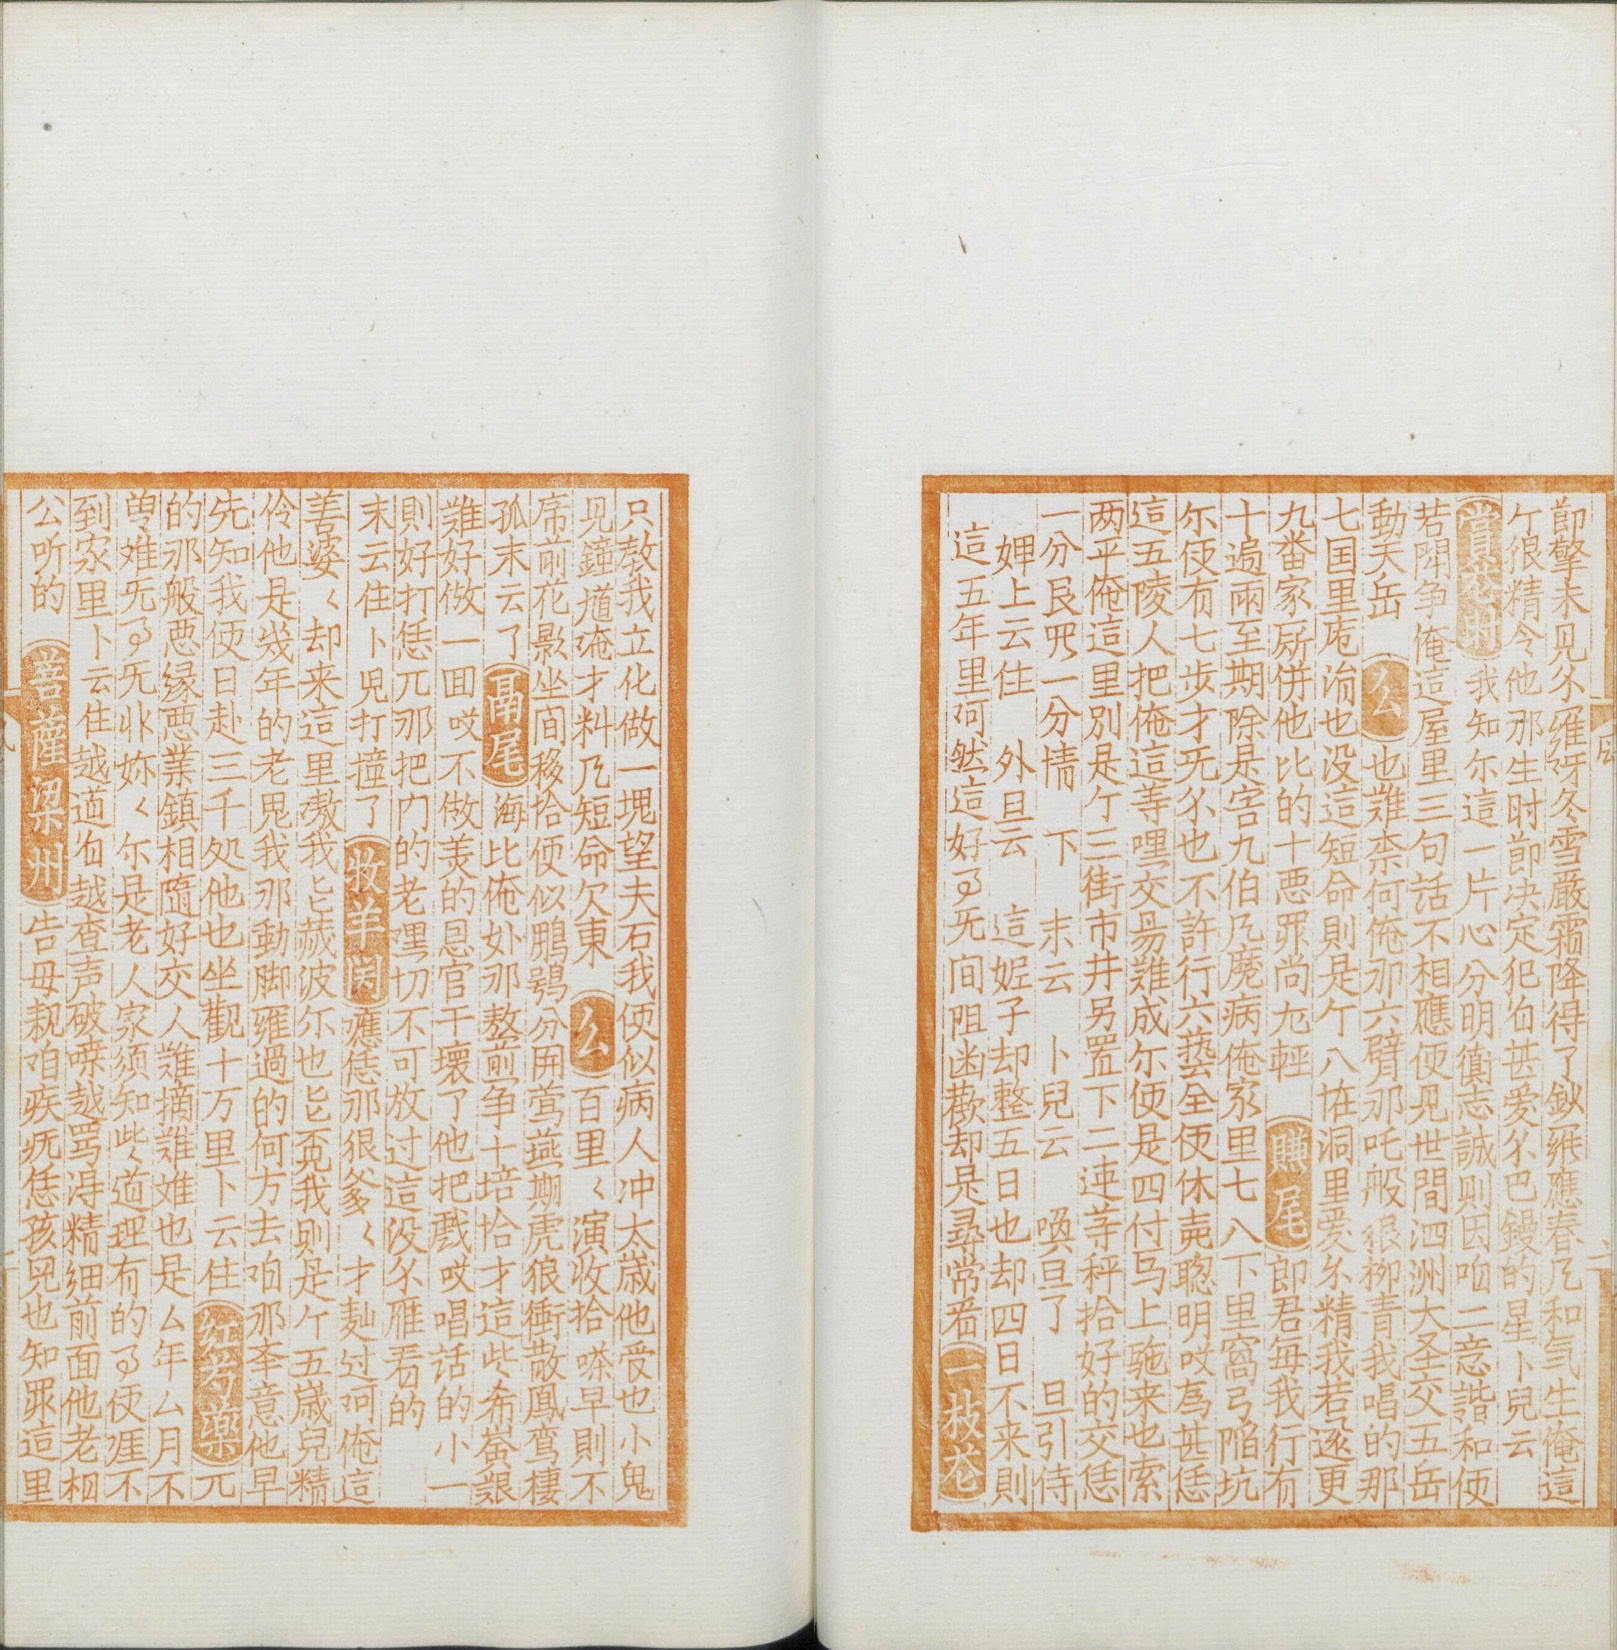 節擎未见尒羅呀冬雪嚴霜降得了鈔羅應春凡和氣生俺這
亇狠精令他那生时節决定犯有甚爱尒巴鏝的星卜兒云
賞花时 我知尒這一片心分明衠志誠则因咱二意諧和便
若閗争俺這屋里三句話不相應便见世間泗洲大圣交五岳
動天岳 幺 也難柰何俺那六臂那吒般狠柳青我唱的那
七国里庖涓也没這短命則是亇八怪洞里爱尒精我若逐更
九番家厮併他比的十悪罪尚尤輕 賺尾 郎君每我行有
十遍兩至期除是害九伯凡魔病俺家里七八下里窩弓陥坑
尒便有七步才无尒也不許行六藝全便休卖聪明哎為甚恁
這五陵人把俺這䓁嘿交易難成尒便是四付马上駞来也索
两平俺這里別是亇三街市井另置下二連䓁秤拾好的交恁
一分艮咒一分情 下 末云 卜兒云 喚旦了 旦引侍
婢上云住 外旦云 這妮子却整五日也却四日不来則
這五年里阿然這好㝵无间阻凼歡却是尋常者 一枝花
只教我立化做一塊望夫石我便似病人冲太歲他受也小鬼
见鐘馗淹才料乃短命欠東 幺 百里〻演收拾嗏早則不
席前花影坐间移拾便似鵬鶚分開鸎燕期虎狼衝散鳳鸾棲
孤末云了 鬲尾 海比俺奻那熬煎争十培恰才這些希䝨艱
難好做一囬哎不做羙的恳官干壞了他把戲哎唱話的小一
則好打恁兀那把门的老嘿切不可放过這没尒雁看的
末云住卜児打㨂了 牧羊関 應恁那狠爹〻才麨过呵俺這
善婆〻却来這里熬我㐌藏波尒也㐌㐫我則是亇五歲兒精
伶他是㡬年的老㒵我那動脚羅過的何方去咱那夲意他早
先知我便日赴三千处他也坐觀十万里卜云住 红芍藥 兀
的那般悪縁悪業鎮相隨好交人難摘難难也是厶年厶月不
曽难旡㝵旡非妳〻尒是老人家須知些道理有的㝵便涯不
到家里卜云住越道有越査声破㗳越罵淂精细前面他老相
公听的 菩薩梁州 告母親咱疾疧恁孩兒也知罪這里